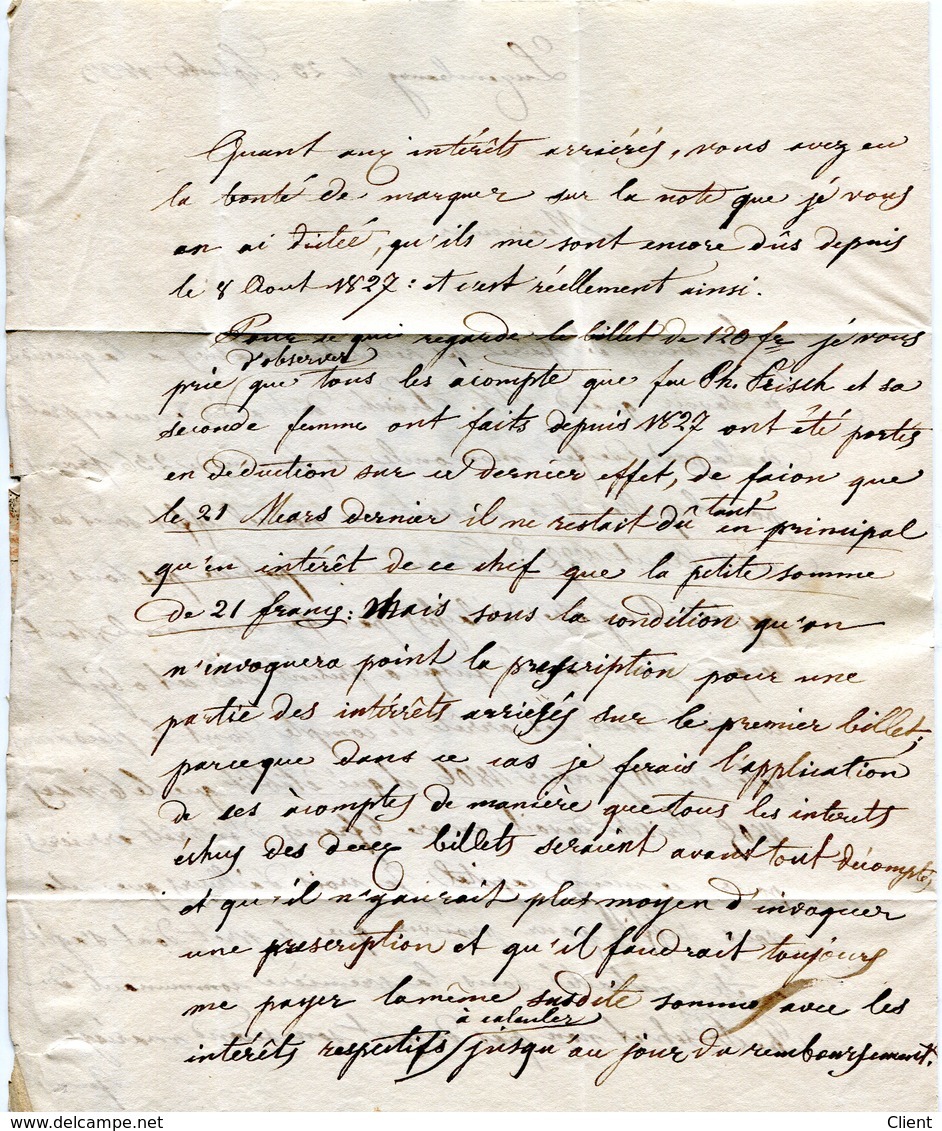 Quant aux intérêts arriérés, vous avez eu
la bonté de marquer sur la note que je vous
en ai dictée, qu'ils me sont encore dûs depuis
le 8 Aout 1827 : et c'est réellement ainsi.
Pour ce qui regarde le billet de 120 fr je vous
d'observer
prie que tous les àcompte que feu Ph. Frisch et sa
seconde femme ont faits depuis 1827 ont été portés
en déduction sur ce dernier effet, de faion que
le 21 Mars dernier il ne restait dû tant en principal
qu'en intérêt de ce chif que la petite somme
de 21 francs : Mais sous la condition qu'on
n'invoquera point la prescription pour une
partie des intérrêts arriérés sur le premier billet;
parceque dans ce cas je ferais l'application
de ces àcomptes de manière que tous les interets
échus des deux billets seraient avant tout décomptés,
et qu'il n'y aurait plus moyen d'invoquer
une prescription et qu'il faudrait toujours
me payer la même susdite somme avec les
à calculer
intérêts respectifs jusqu'au jour du remboursement.
Client
www.delcampe.net